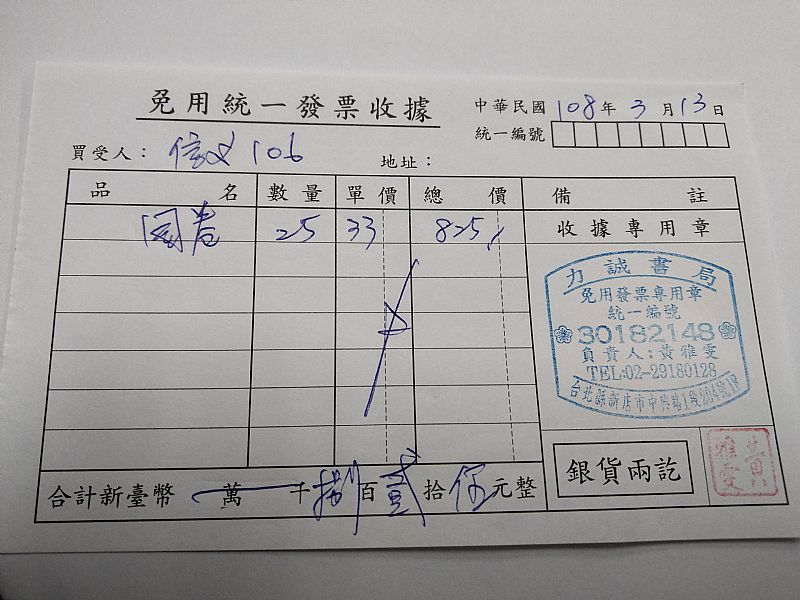 免用統一發票收據
中華民國 108 年 3 月 13 日
統一編號
買受人： 106 地址：
品名 數量 單價 總價 備註
25 33 825 收據專用章
力誠書局
免用發票專用章
統一編號
30182148
負責人:黃雅雯
TEL:02-29180128
台北縣新店市中興路1段204號1樓
合計新臺幣 萬 千 捌 百 貳 拾 伍 元整
銀貨兩訖
黃雅雯